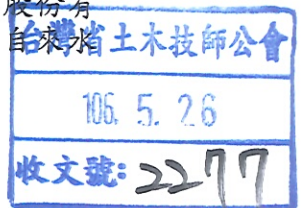 股份有
自來水
台灣省土木技師公會
106. 5. 26
收文號:2277